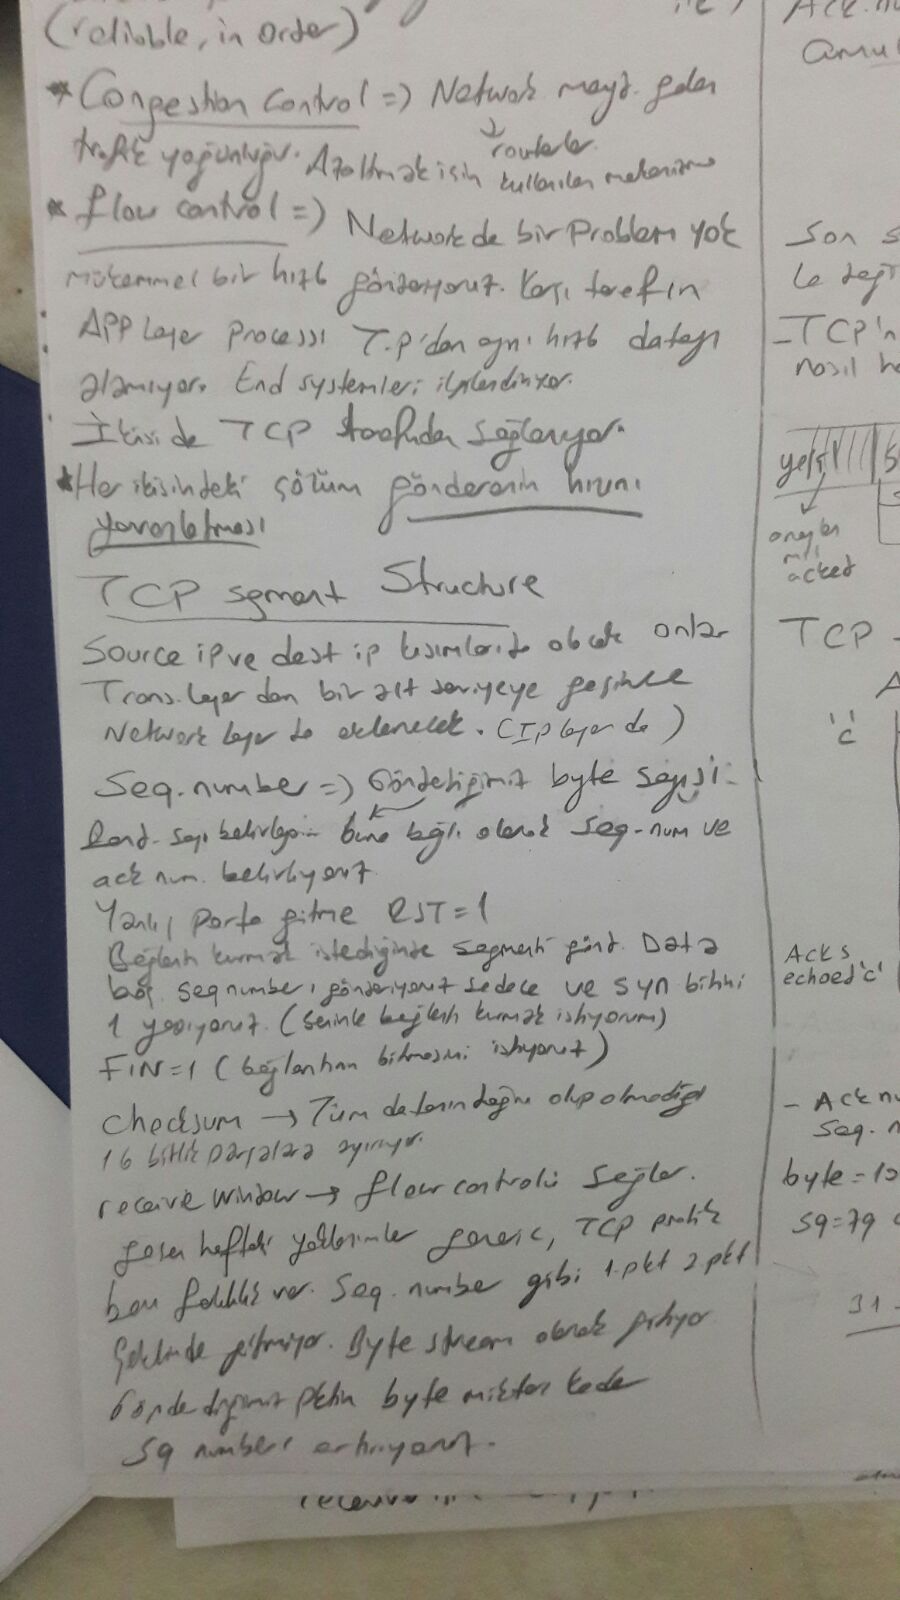 (reliable, in order)
* Congestion Control => Network meyd. gelen
trafik yoğunluğu. Azaltmak için kullanılan mekanizma
routerlar.
* flow control => Networkde bir problem yok
mükemmel bir hızla gönderiyoruz. Karşı tarafın
APP layer processi T.P'dan aynı hızla datayı
alamıyor. End systemleri ilgilendiriyor.
İkisi de TCP tarafından sağlanıyor.
* Her ikisindeki çözüm gönderenin hızını
yavaşlatması
TCP segment Structure
Source ip ve dest ip kısımları da olacak onlar
Trans. layer dan bir alt seviyeye geçince
Network layer da eklenecek. (IP layer da)
Seq. number => Gönderdiğimiz byte sayısı
Rand. sayı buna bağlı olarak seq-num ve
ack num. belirliyoruz
Yanlış porta gitme RST=1
Bağlantı kurmak istediğinde segmenti gönd. Data
boş. seq number ı gönderiyoruz sadece ve syn bitini
1 yapıyoruz. (Seninle bağlantı kurmak istiyorum)
FIN=1 (bağlantının bitmesini istiyoruz)
Checksum → Tüm datanın doğru olup olmadığı
16 bitlik parçalara ayırıyor.
receive window → flow controlü sağlar.
geçen haftaki yöntemler generic, TCP pratik
bazı farklılık var. Seq. number gibi 1.pkt 2.pkt
şeklinde gitmiyor. Byte stream olarak gidiyor
Gönderdiğimiz pktin byte miktarı kadar
sq numberı artırıyoruz.
Ack n
Son s
- TCP'n
nasıl
yeşil
onaylan
acked
TCP -
A
'c'
Acks
echoed 'c'
- Ack nu
Seq. n
byte = 10
sq=79
31 -